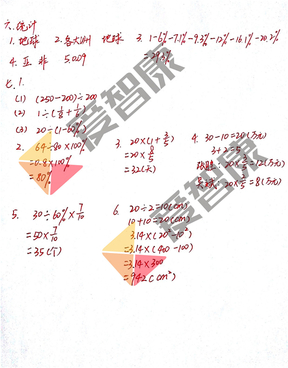 六、统计
1. 地球 2. 各大洲 地球 3. 1-6%-7.1%-9.3%-12%-16.1%-20.2%
=29.3%
4. 亚 非 5.009
七、1.
(1) (250-200)÷200
(2) 1÷(1/6+1/6)
(3) 20÷(1-60%)
2. 64÷80×100%
=0.8×100%
=80%
3. 20×(1+3/5)
=20×8/5
=32(天)
4. 30-10=20(万元)
3+2=5
20×3/5=12(万元)
20×2/5=8(万元)
5. 30÷60%×7/10
=50×7/10
=35(个)
6. 20÷2=10(cm)
10+10=20(cm)
3.14×(20²-10²)
=3.14×(400-100)
=3.14×300
=942(cm²)
爱智康